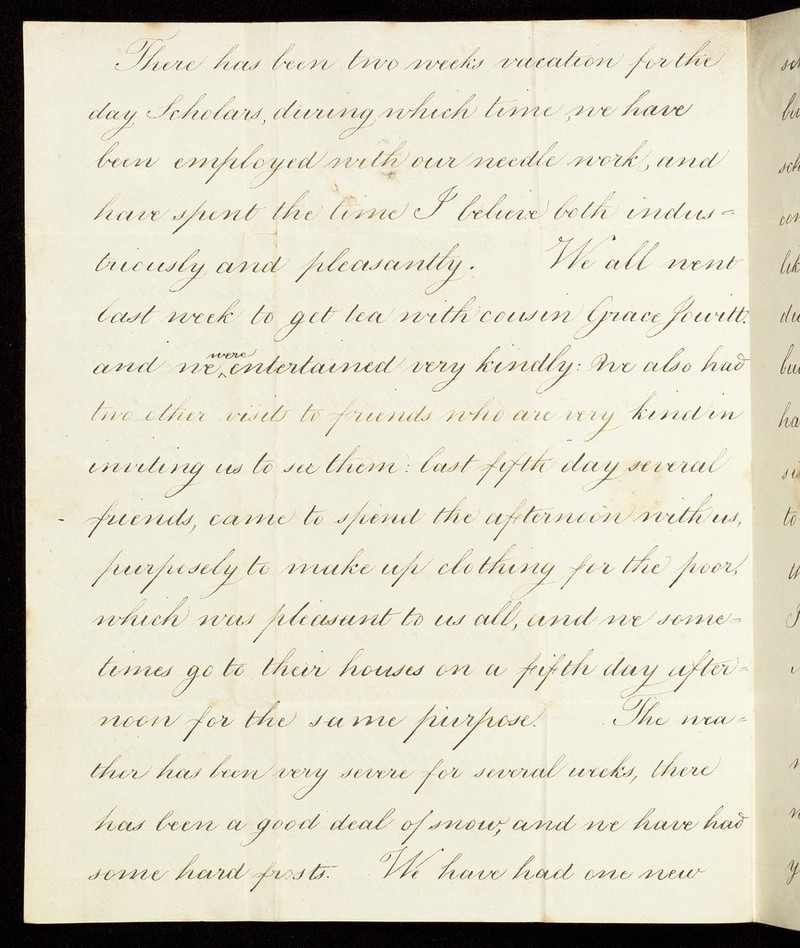 There has been two weeks vacation for the
day Scholars, during which time, we have
been employed with our needle work, and
have spent the time I believe both indus=
triously and pleasantly. We all went
last week to get tea with cousin Grace Jowitt.
and we ^were entertained very kindly: we also had
two other visits to friends who are very kind in
inviting us to see them: last fifth day several
friends, came to spend the afternoon with us,
purposely to make up clothing for the poor,
which was pleasant to us all, and we some=
times go to their houses on a fifth day after=
noon for the same purpose. The wea=
ther has been very severe for several weeks, there
has been a good deal of snow, and we have had
some hard frosts. We have had one new